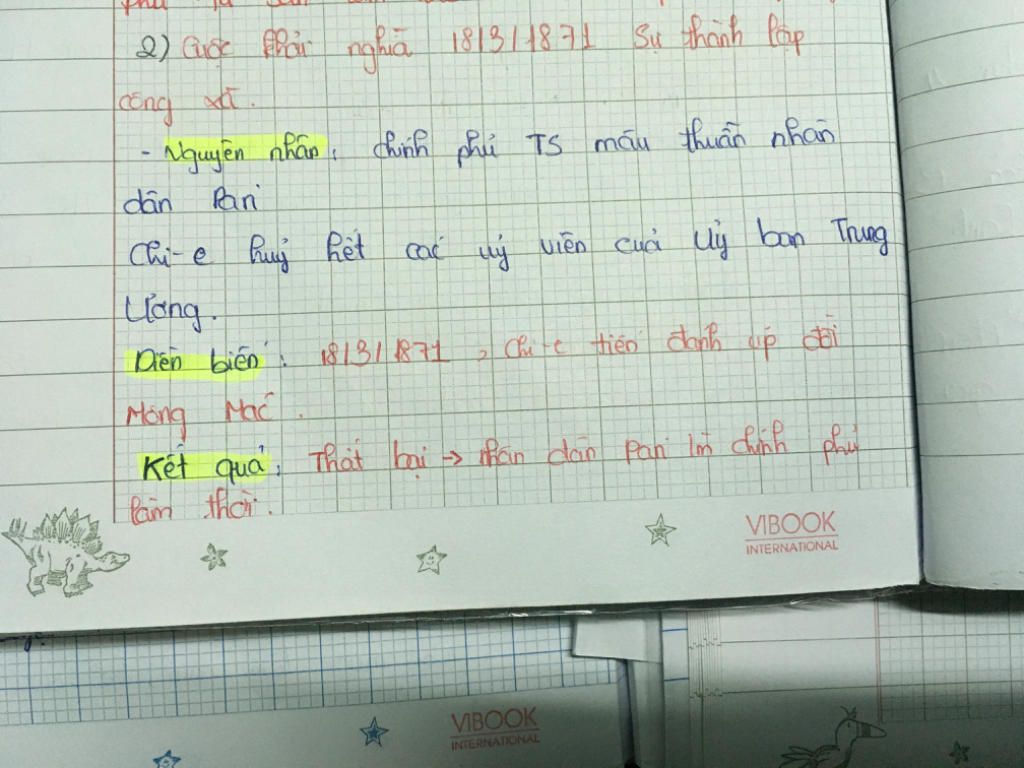 2) Cuộc khởi nghĩa 18/3/1871 Sự thành lập
công xã.
- Nguyên nhân: chính phủ TS mâu thuẫn nhân
dân Pari
Chi-e huỷ hết các uỷ viên cuả Uỷ ban Trung
Ương.
Diễn biến: 18/3/1871, Chi-e tiến đánh úp đồi
Mông Mác.
Kết quả: Thất bại → nhân dân Pari là chính phủ
lâm thời.
VIBOOK
INTERNATIONAL
VIBOOK
INTERNATIONAL